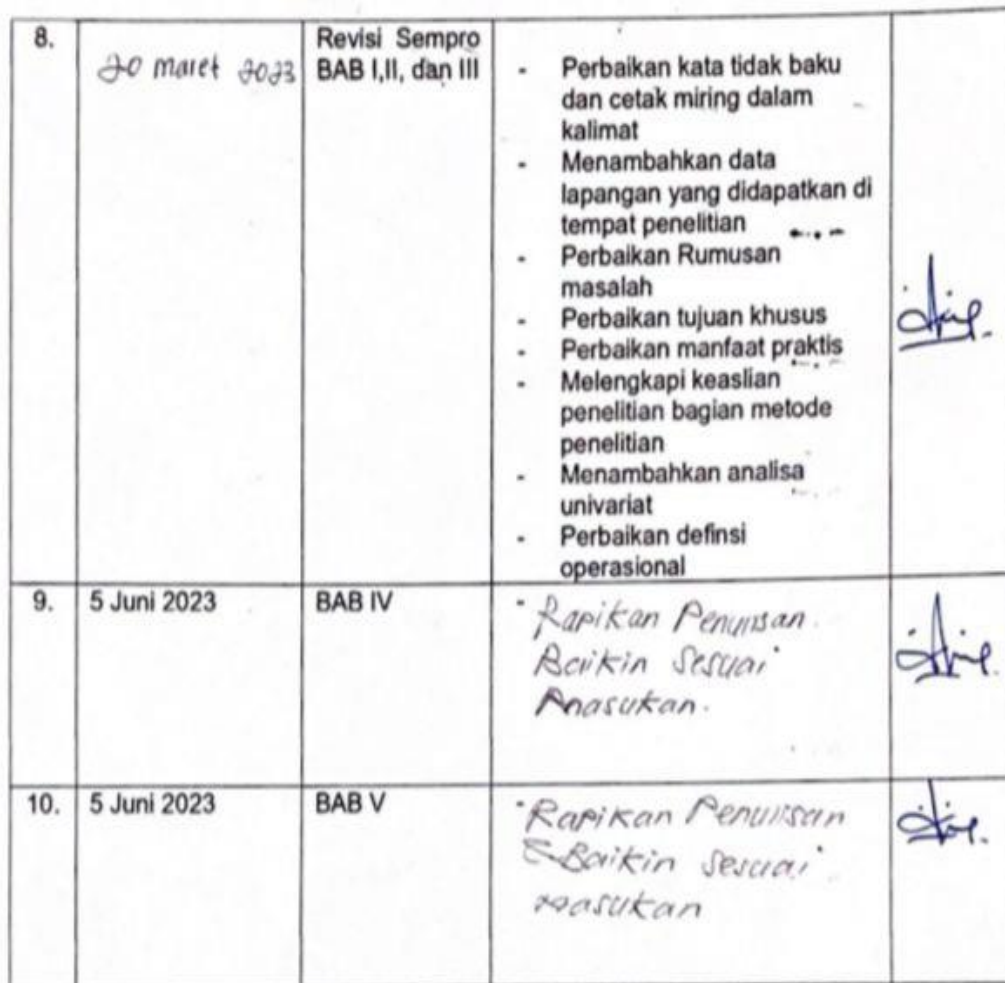 8.
20 maret 2023
Revisi Sempro
BAB I,II, dan III
- Perbaikan kata tidak baku
dan cetak miring dalam
kalimat
- Menambahkan data
lapangan yang didapatkan di
tempat penelitian
- Perbaikan Rumusan
masalah
- Perbaikan tujuan khusus
- Perbaikan manfaat praktis
- Melengkapi keaslian
penelitian bagian metode
penelitian
- Menambahkan analisa
univariat
- Perbaikan definsi
operasional
9.
5 Juni 2023
BAB IV
- Rapikan Penulisan.
Baikin sesuai
masukan.
10.
5 Juni 2023
BAB V
- Rapikan Penulisan
Baikin sesuai
masukan